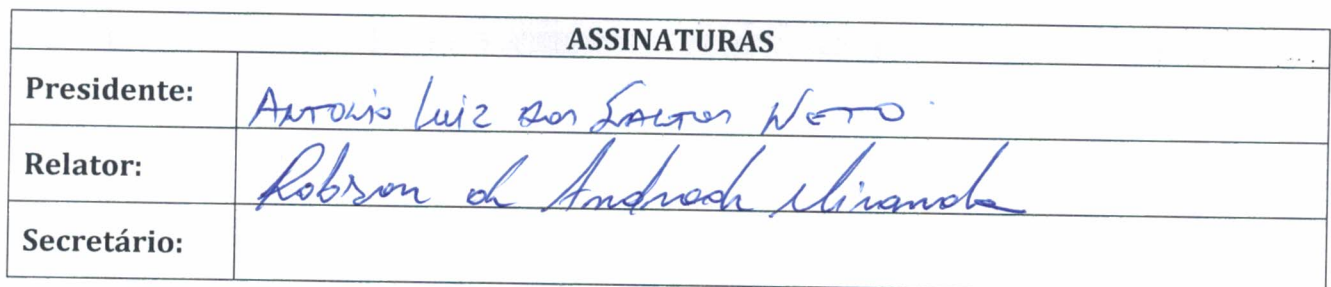 ASSINATURAS
Presidente: Antonio Luiz dos Santos Neto
Relator: Robson de Andrade Miranda
Secretário: